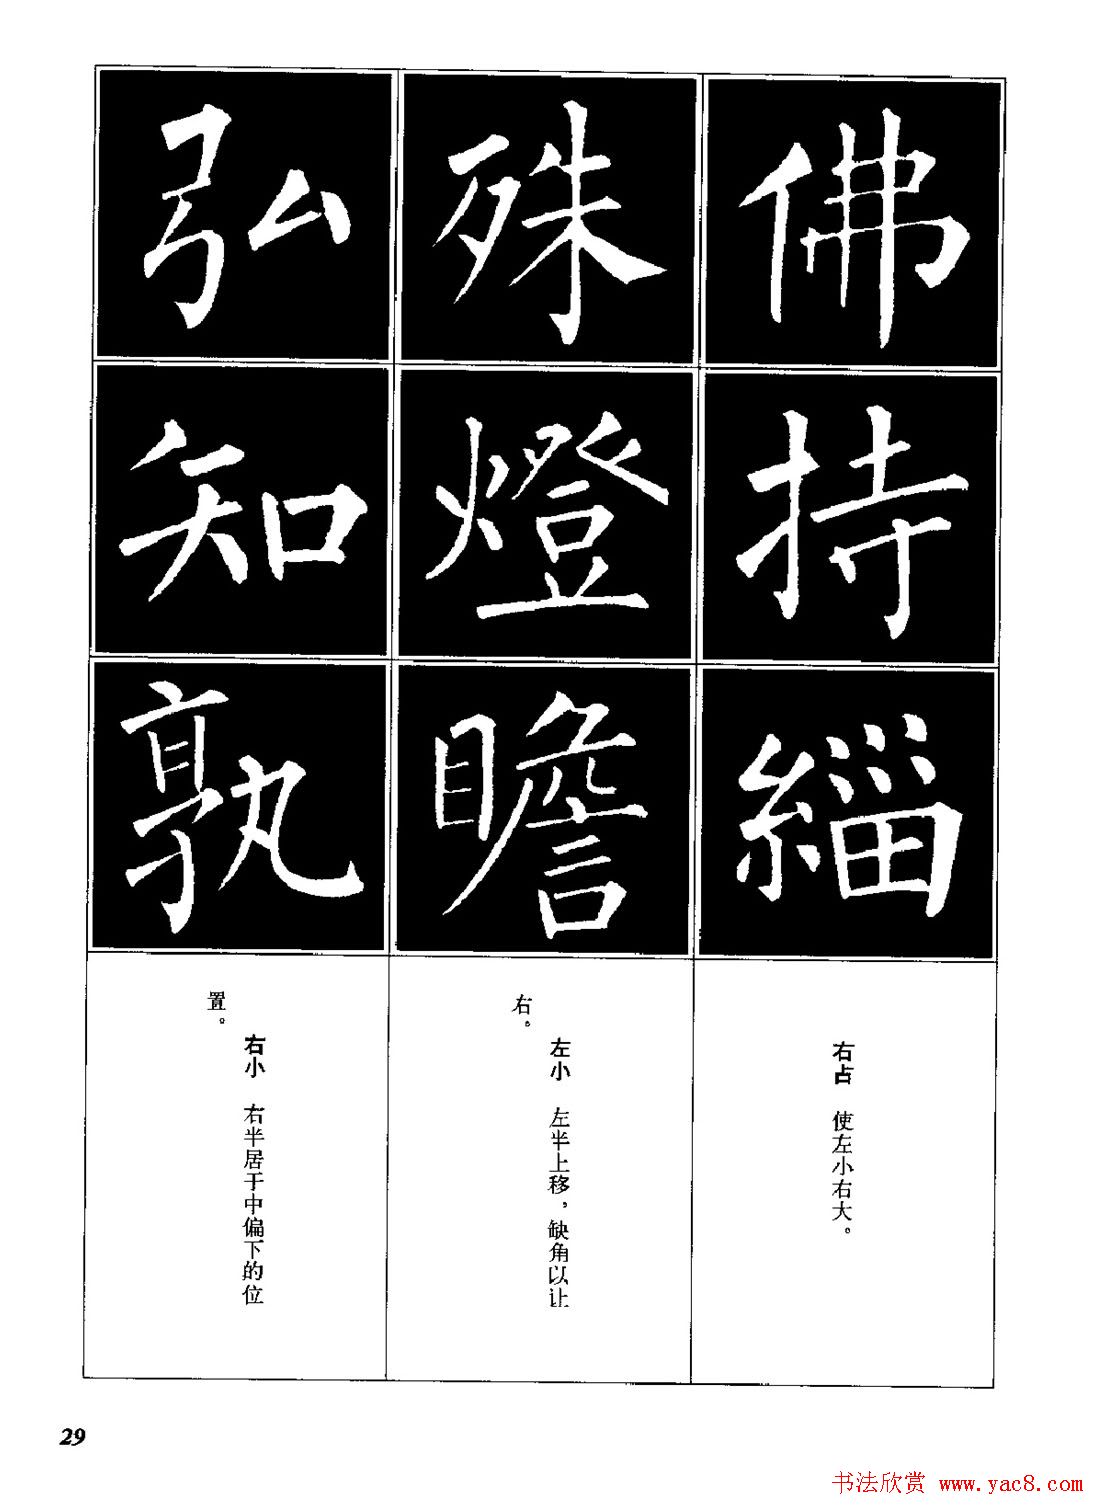 佛
持
緇
右占 使左小右大。
殊
燈
瞻
左小 左半上移，缺角以让
右。
弘
知
孰
右小 右半居于中偏下的位
置。
29
书法欣赏 www.yac8.com